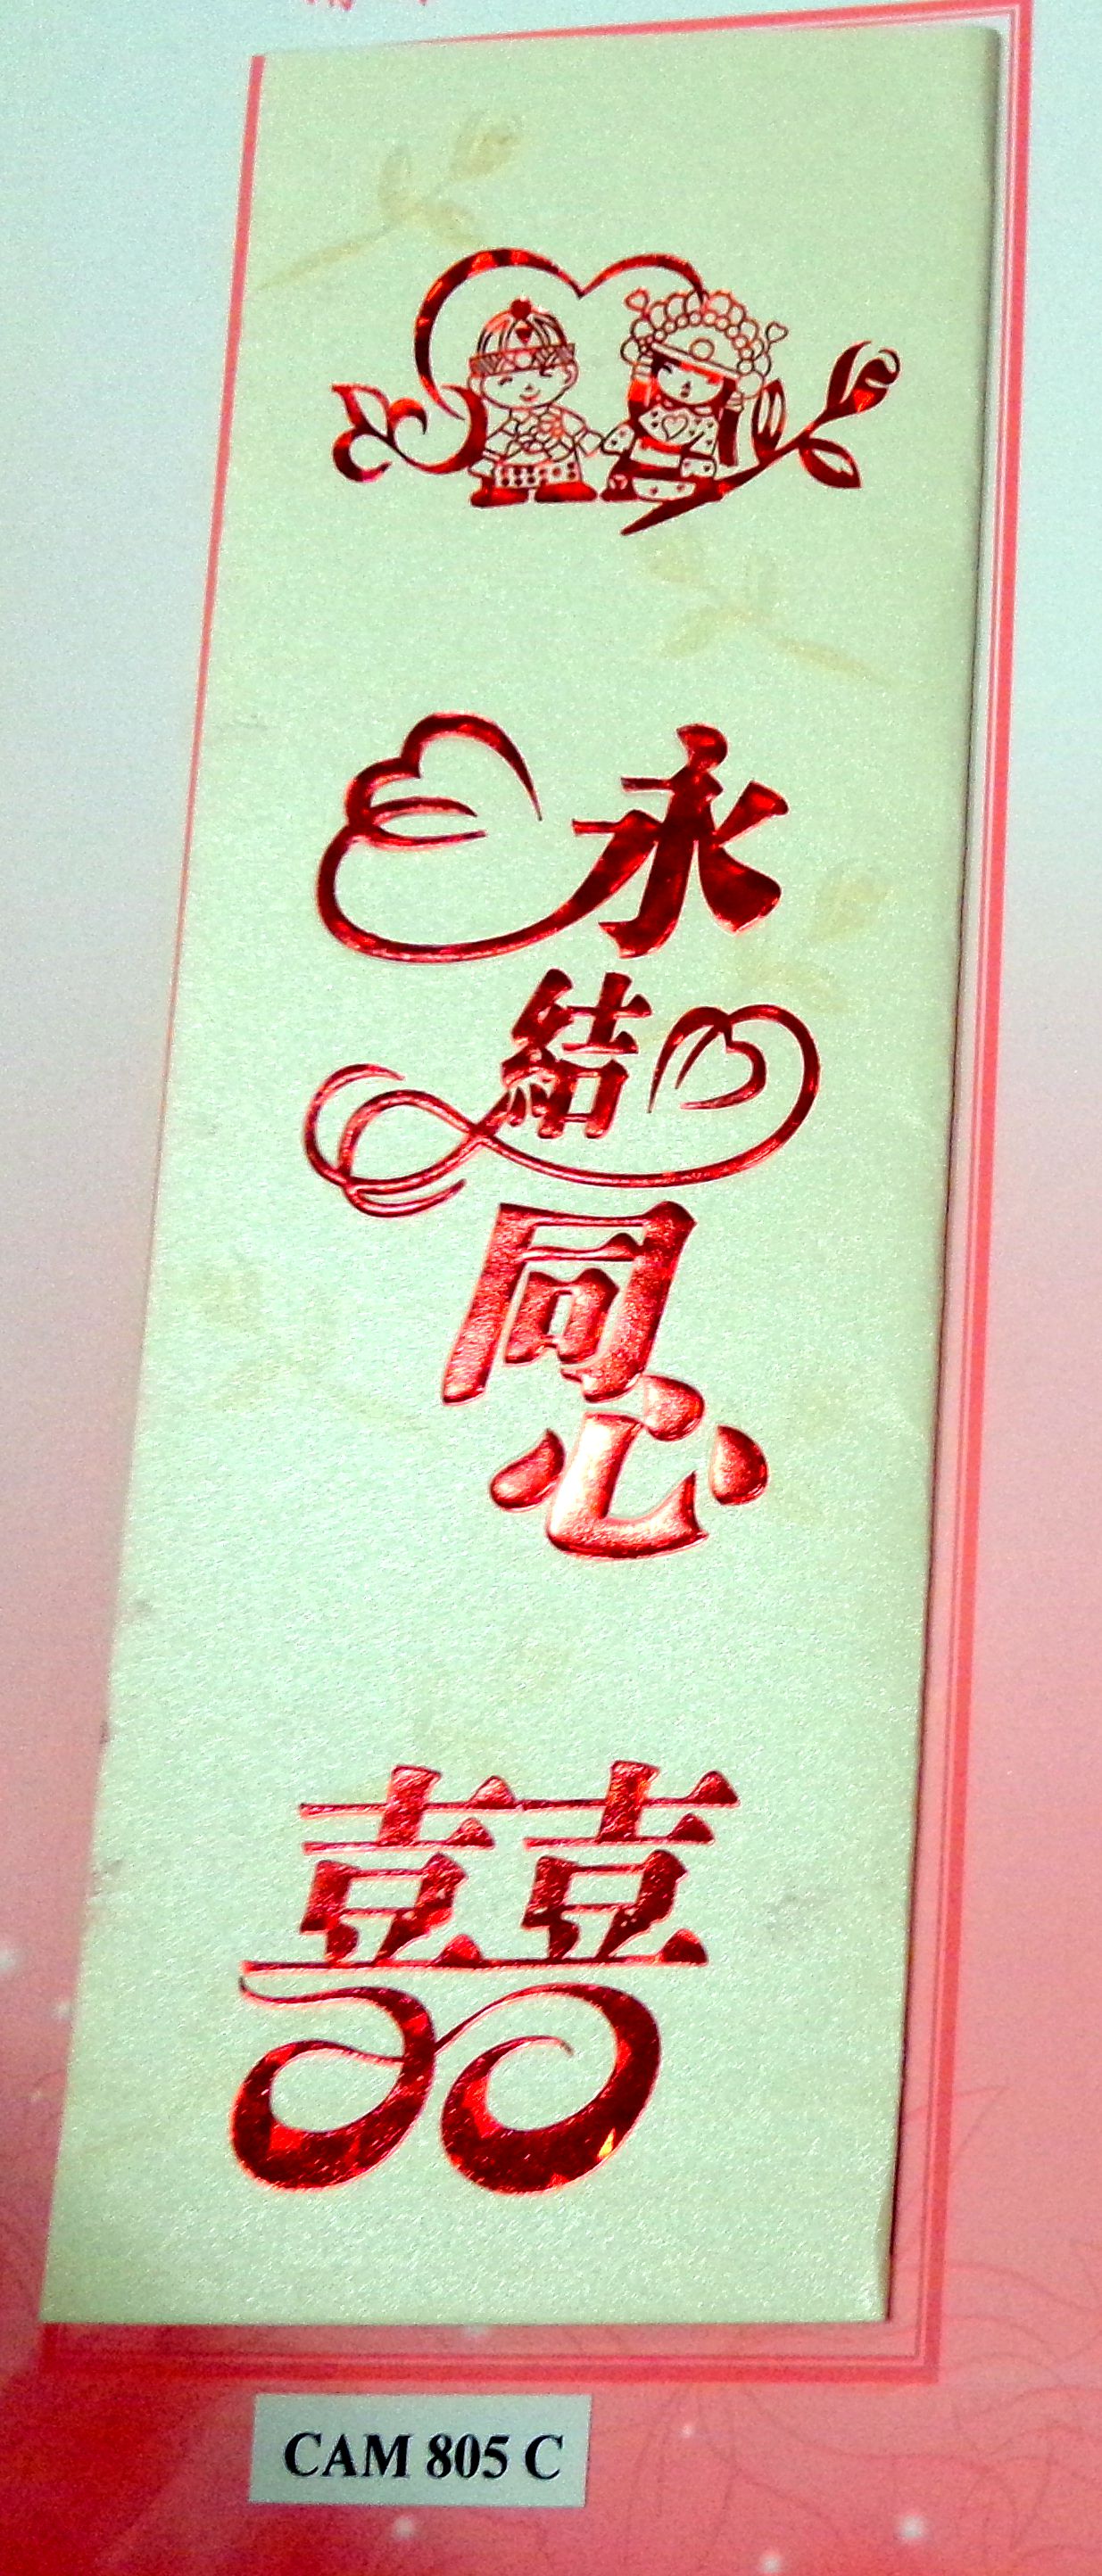 永結同心
囍
CAM 805 C